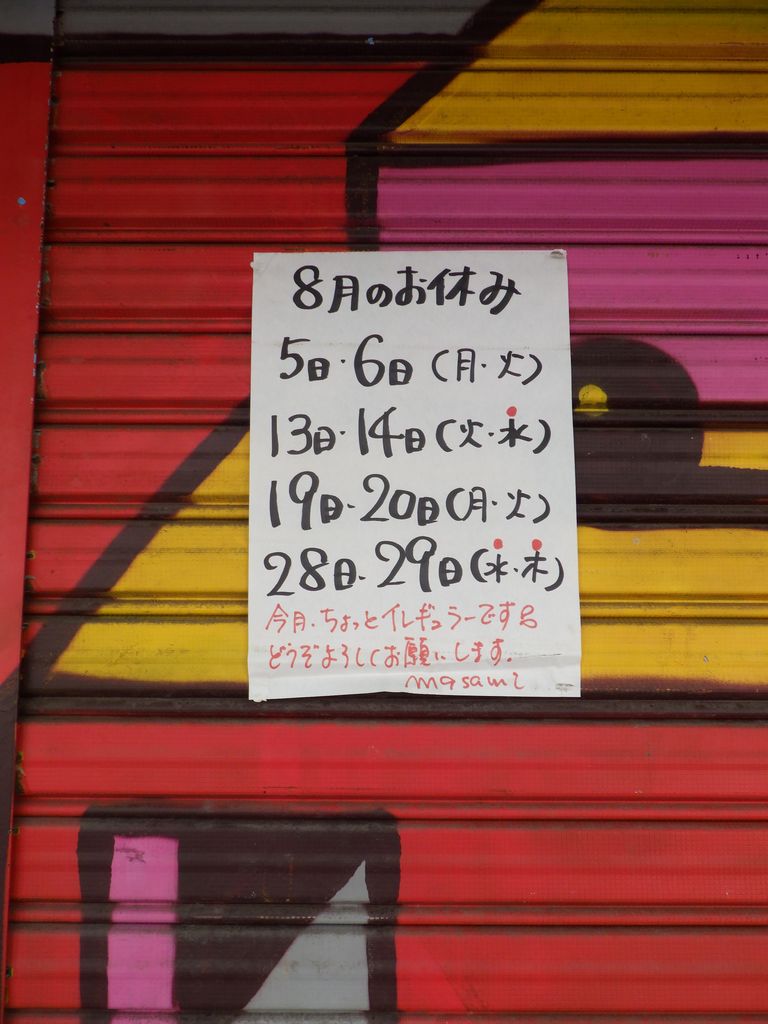 8月のお休み
5日・6日(月・火)
13日・14日(火・水)
19日・20日(月・火)
28日・29日(水・木)
今月、ちょっとイレギュラーです。
どうぞよろしくお願いします。
masami